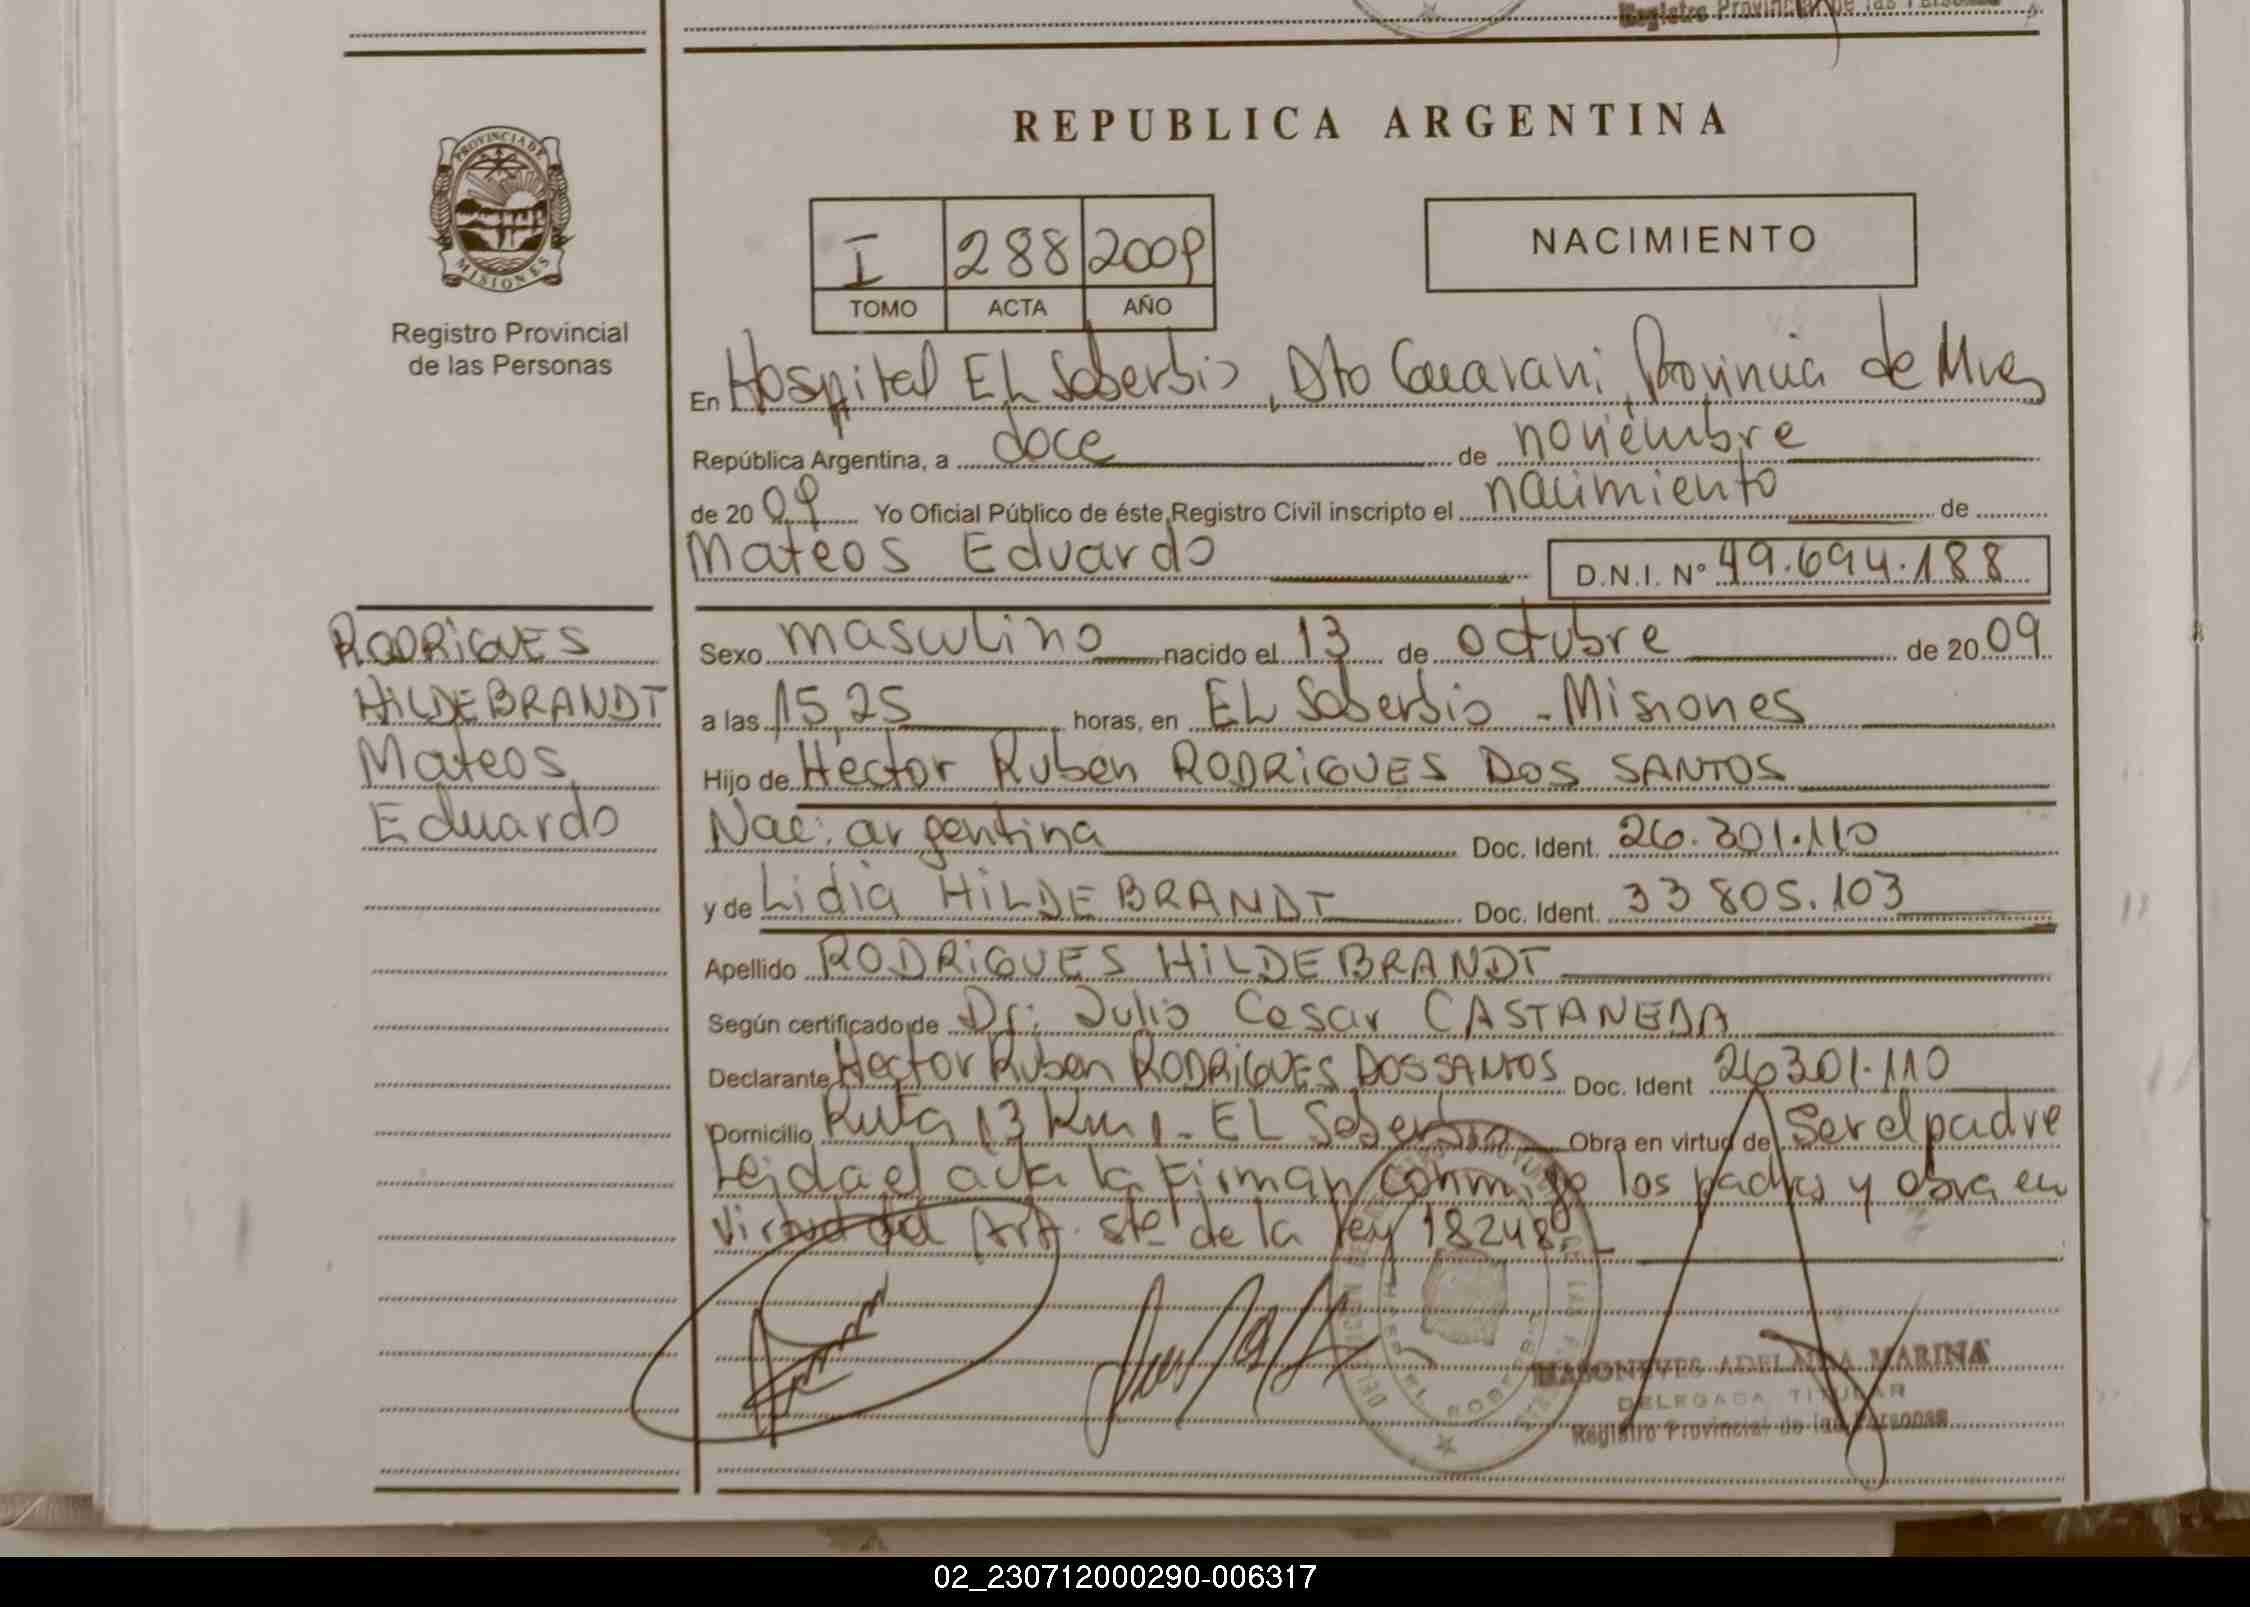 Registro Provincial de las Personas
REPUBLICA ARGENTINA
PROVINCIA DE
MISIONES
Registro Provincial
de las Personas
I 288 2009
TOMO ACTA AÑO
NACIMIENTO
En Hospital EL Soberbio, Dto Guarani, Provincia de Mnes
República Argentina, a doce de noviembre
de 2009 Yo Oficial Público de éste Registro Civil inscripto el nacimiento de
Mateos Eduardo D.N.I. Nº 49.694.188
RODRIGUES
HILDEBRANDT
Mateos
Eduardo
Sexo masculino nacido el 13 de octubre de 2009
a las 15,25 horas, en EL Soberbio - Misiones
Hijo de Héctor Ruben RODRIGUES DOS SANTOS
Nac: argentina Doc. Ident. 26.301.110
y de Lidia HILDEBRANDT Doc. Ident. 33 805.103
Apellido RODRIGUES HILDEBRANDT
Según certificado de Dr: Julio Cesar CASTANEDA
Declarante Hector Ruben RODRIGUES DOS SANTOS Doc. Ident 26301.110
Domicilio Ruta 13 Km 1 - EL Soberbio Obra en virtud de Ser el padre
Leida el acta la firman conmigo los padres y obra en
virtud del Art. 5to de la ley 18248.-
MASONEVES ADELAIDA MARINA
DELEGADA TITULAR
Registro Provincial de las Personas
02_230712000290-006317